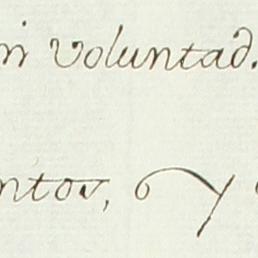 voluntad.
ntos, o y